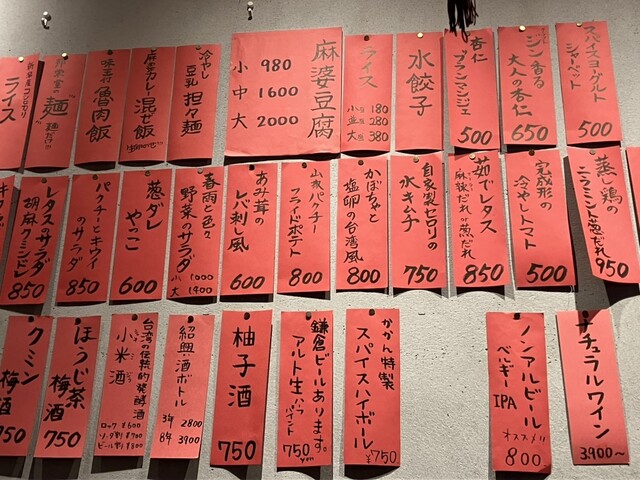 ライス
麺
味玉付
魯肉飯
麻婆カレー
混ぜ飯
冷やし
豆乳
担々麺
麻婆豆腐
小 980
中 1600
大 2000
ライス
小 180
並 280
大 380
水餃子
杏仁
ブランマンジェ
500
ジン香る
大人の杏仁
650
スパイスヨーグルト
シャーベット
500
レタスのサラダ
胡麻クミンドレ
850
パクチーとキウイ
のサラダ
850
葱ダレ
やっこ
600
春雨と色々
野菜のサラダ
小 1000
大 1400
あみ茸の
レバ刺し風
600
山椒パクチー
フライドポテト
800
かぼちゃと
塩卵の台湾風
800
自家製セロリの
水キムチ
750
茹でレタス
麻辣だれor葱だれ
850
完成形の
冷やしトマト
500
蒸し鶏の
ニラミント葱だれ
950
クミン
梅酒
750
ほうじ茶
梅酒
750
台湾の伝統的発酵酒
小米酒
ロック ¥600
ソーダ割 ¥700
ビール割 ¥800
紹興酒ボトル
3年 2800
8年 3900
柚子酒
750
鎌倉ビールあります。
アルト生 ハーフパイント
750yen
かかん特製
スパイスハイボール
¥750
ノンアルビール
ベルギーIPA
オススメ!!
800
ナチュラルワイン
3,900〜